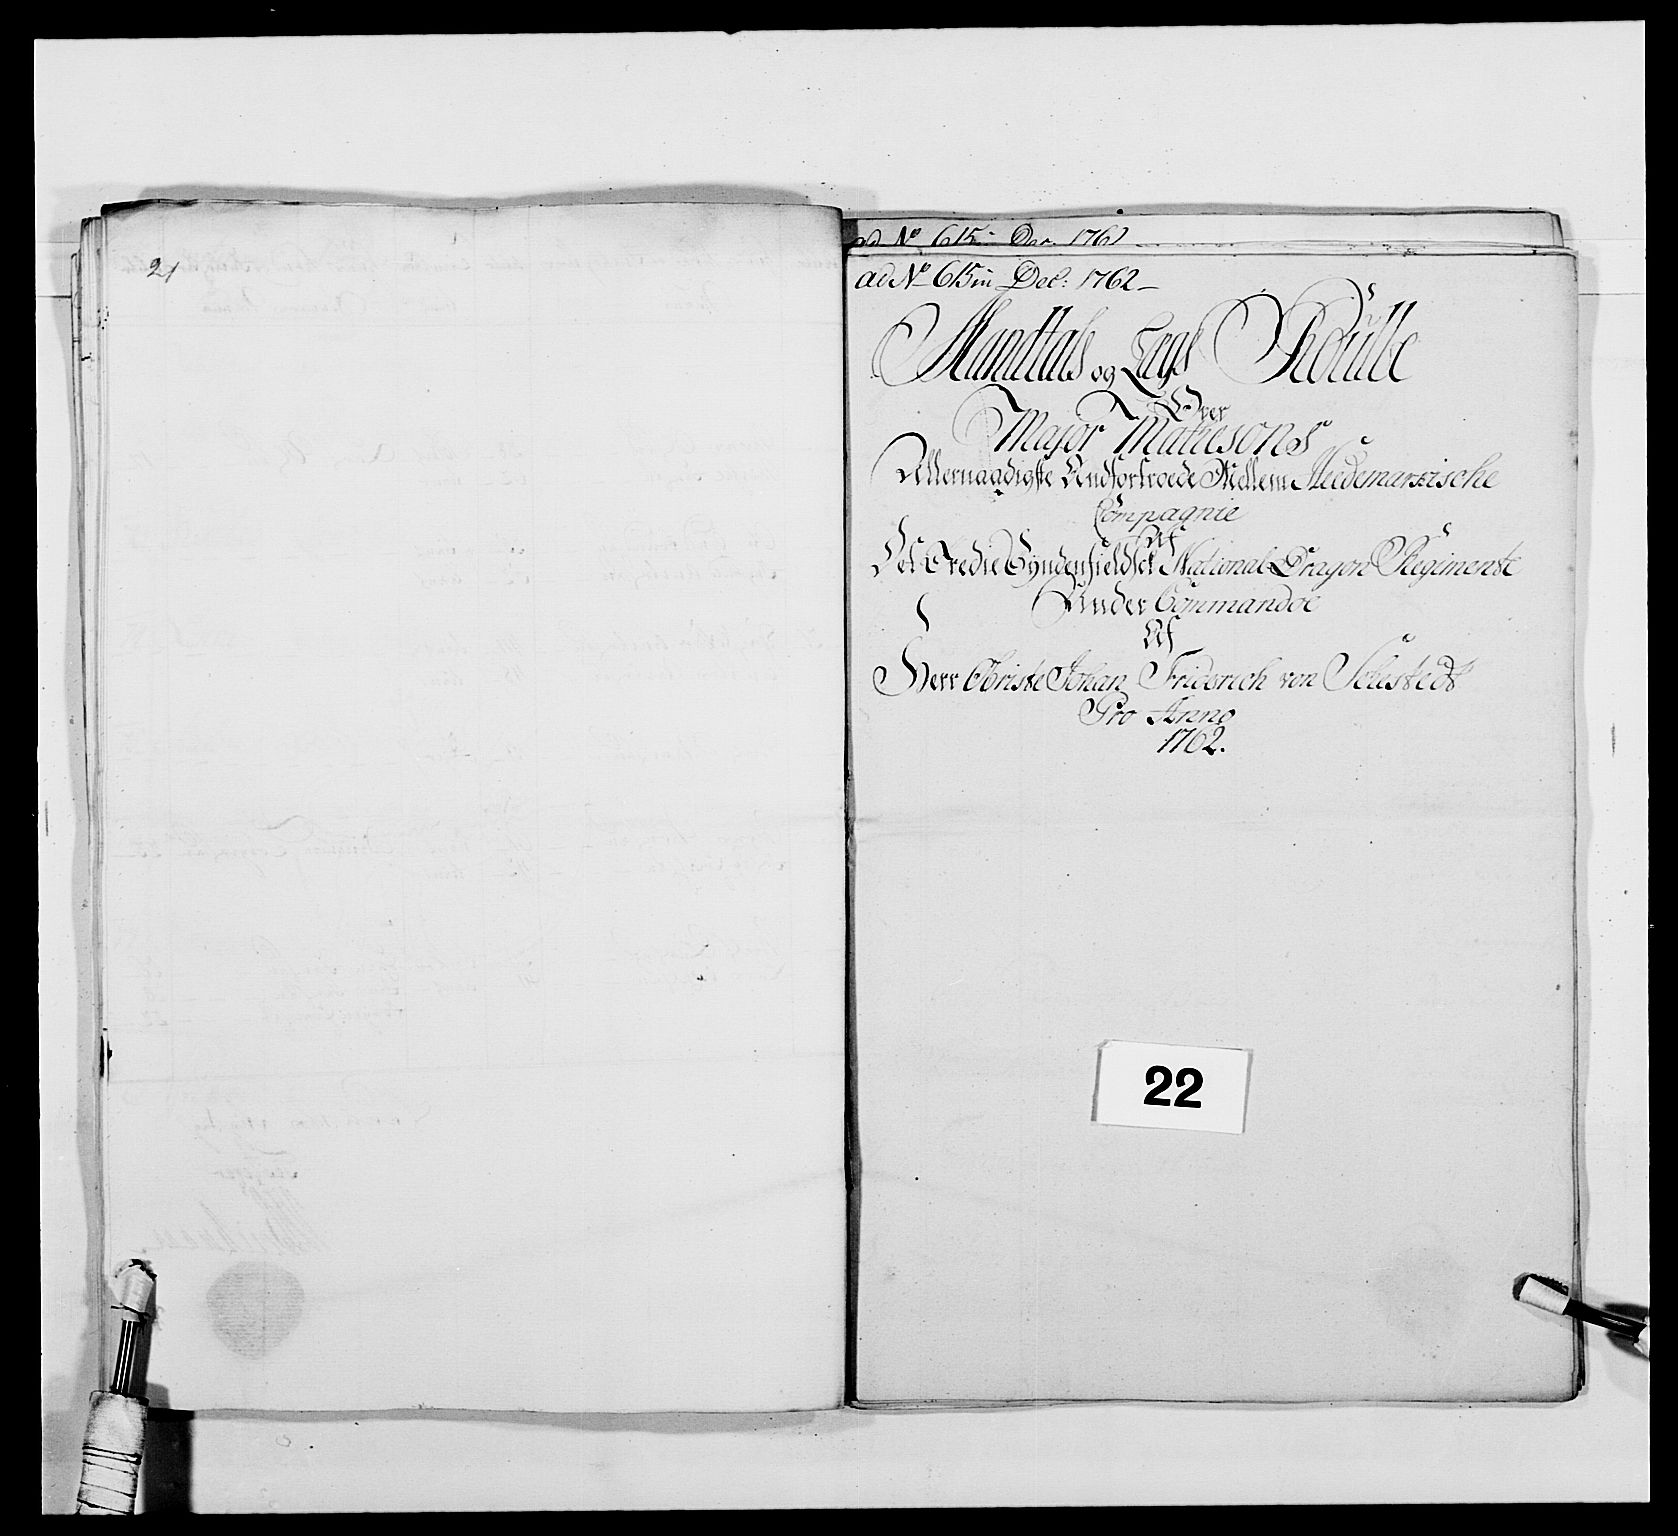 21
ad No 615 Dec. 1762
ad No 615 in Dec: 1762
Mandtals og Lægs Roulle
Over
Major Mathesons
Allernaadigste Andfortroede Mellem Heedemarkische
Compagnie
Af
Det Tredie Syndenfieldsek National Dragon Regimente
Under Commandoe
Af
Herr Christe Johan Friderich von Selestedt
Pro Anno
1762.
22